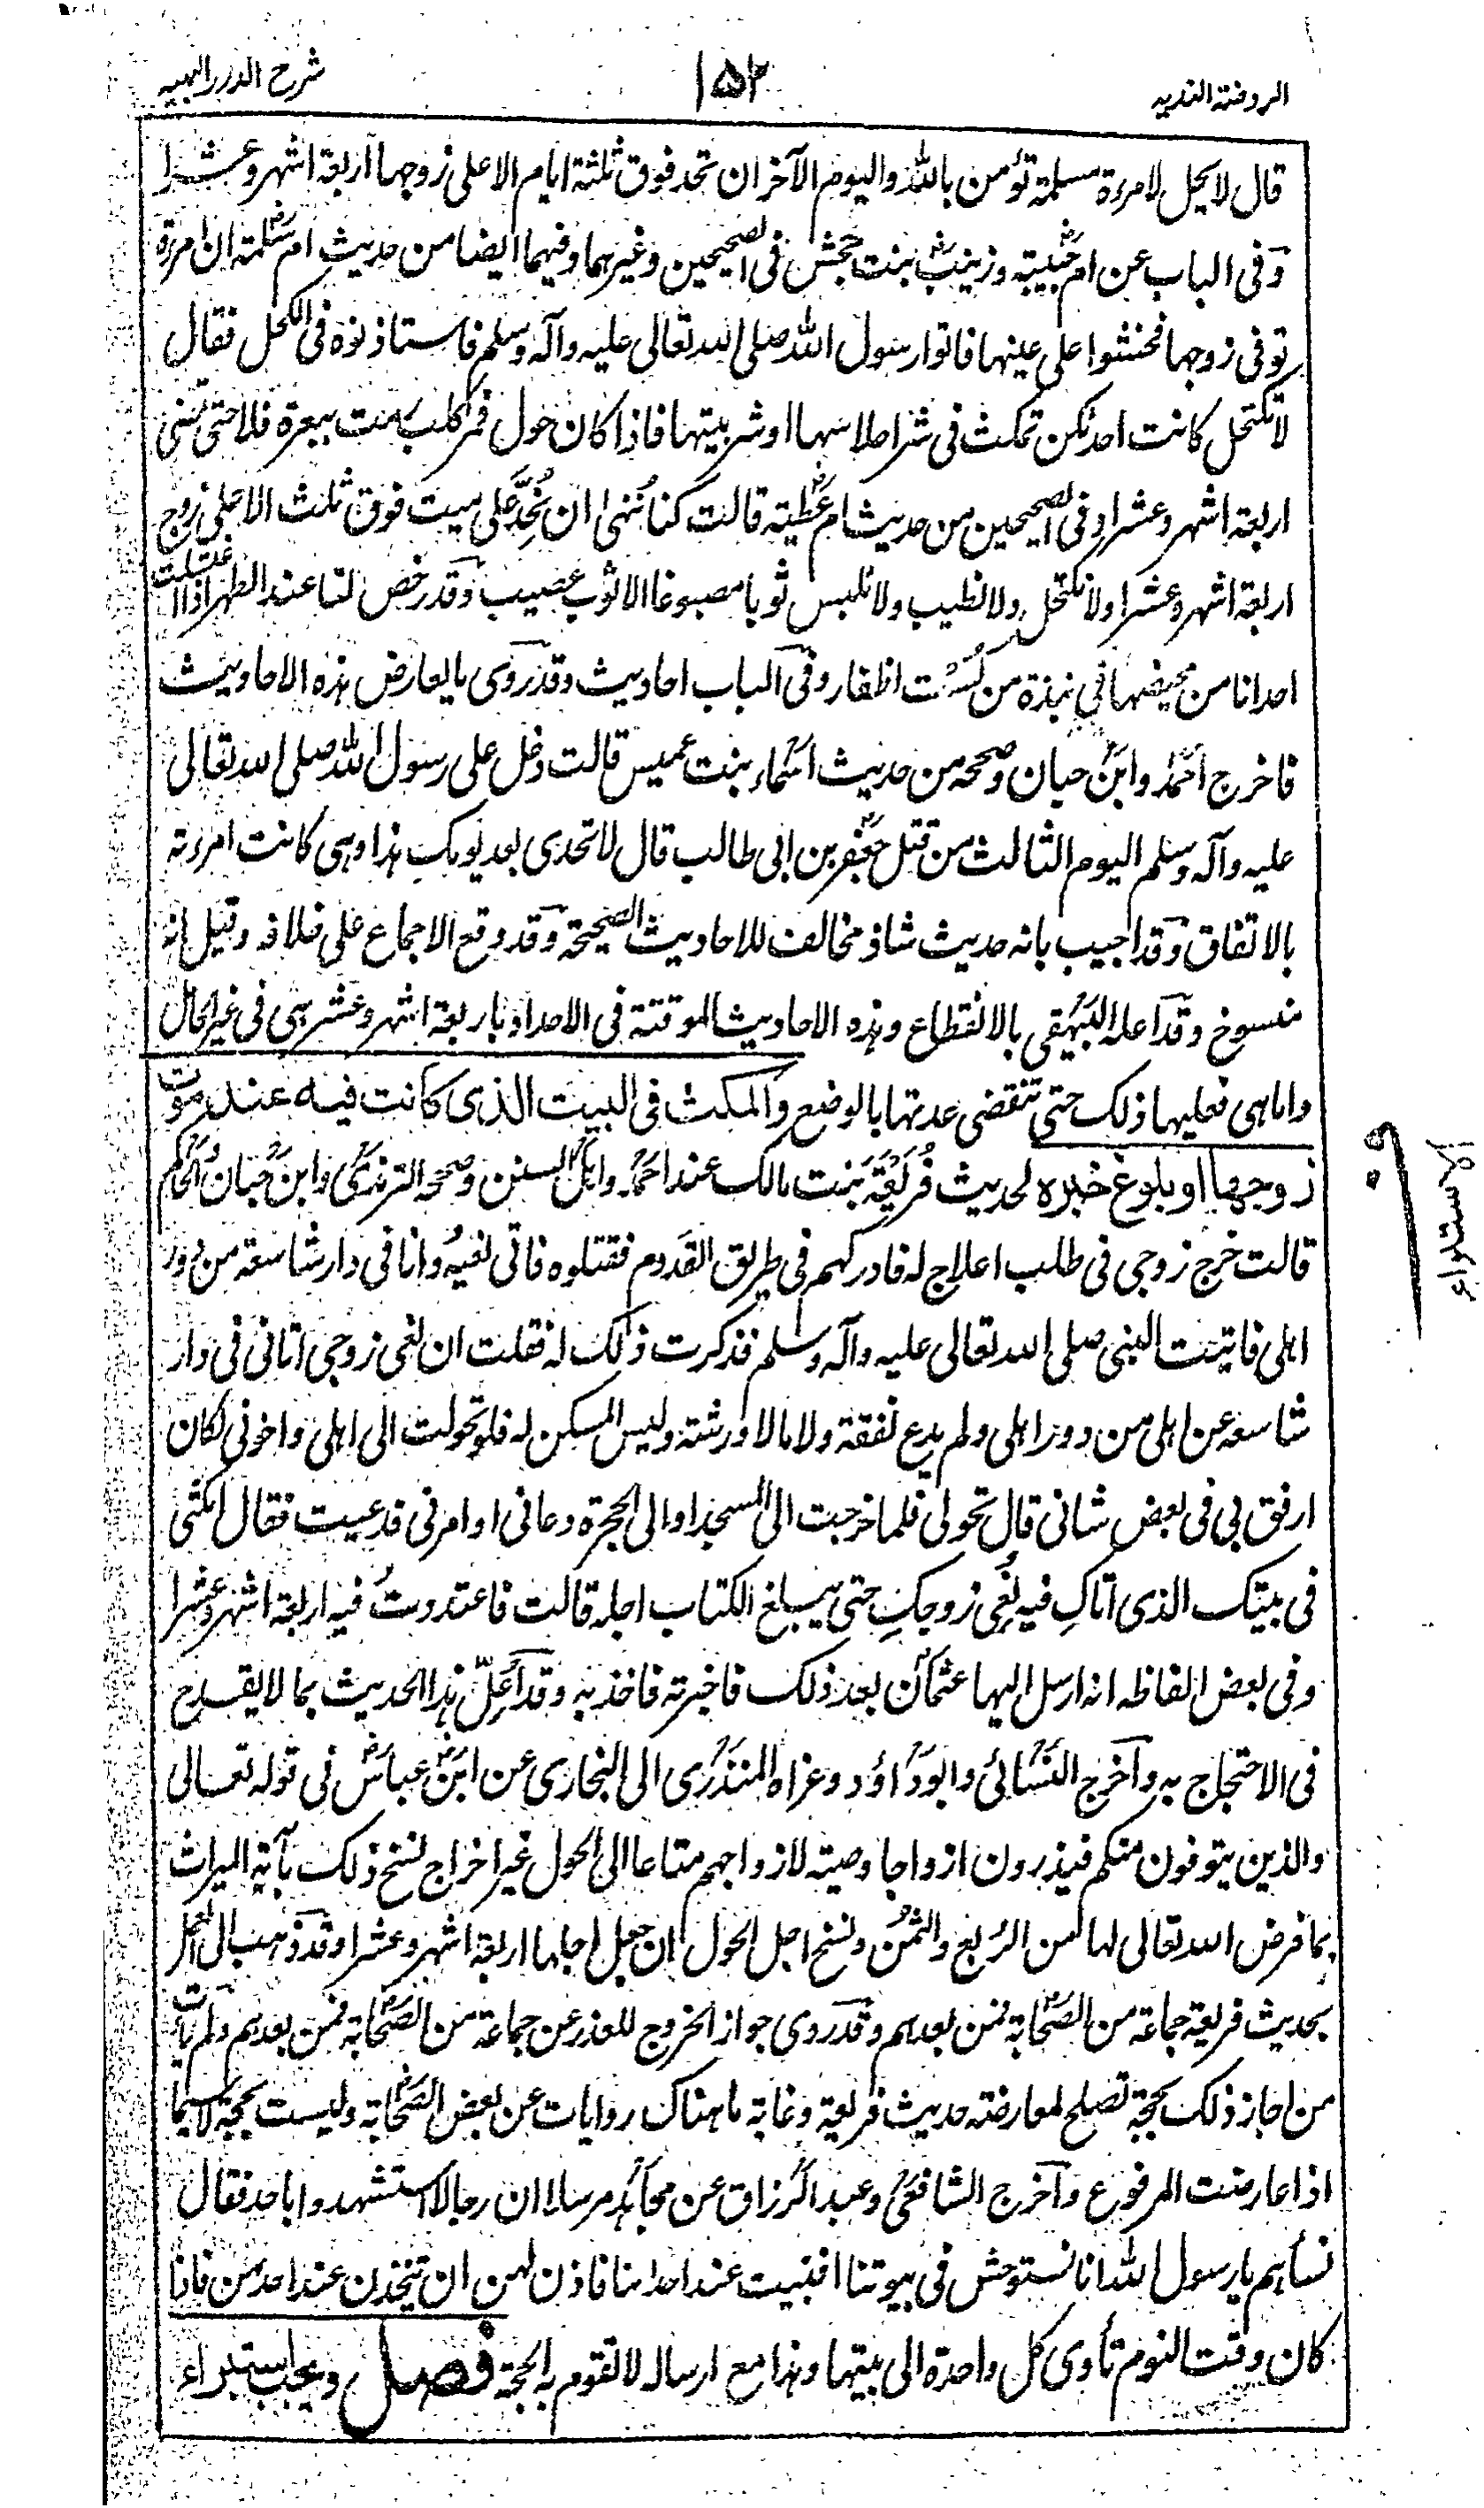 الروضة الندیه
۱۵۲
شرح الدرر البهیه
قال لا یحل لامرءة مسلمة تؤمن باللہ والیوم الآخر ان تحد فوق ثلثة ایام الا علی زوجها اربعة اشهر وعشرا
وفی الباب عن ام حبیبة وزینب بنت جحش فی الصحیحین وغیرهما وفیهما ایضا من حدیث ام سلمة ان امرءة
توفی زوجها فخشوا علی عینها فاتوا رسول اللہ صلی اللہ تعالی علیه وآله وسلم فاستاذنوه فی الکحل فقال
لا تکتحل کانت احدٰکن تمکث فی شر احلاسها او شر بیتها فاذا کان حول فمر کلب رمت ببعرة فلا حتی تمضی
اربعة اشهر وعشرا وفی الصحیحین من حدیث ام عطیة قالت کنا نُنهیٰ ان نُحِدَّ علی میت فوق ثلث الا علی زوج
اربعة اشهر وعشرا ولا نکتحل ولا نطیب ولا نلبس ثوبا مصبوغا الا ثوب عصیب وقد رخص لنا عند الطهر اذا اغتسلت
احدانا من محیضها فی نبذة من کُسْت اظفار وفی الباب احادیث وقد روی ما یعارض هذه الاحادیث
فاخرج احمد وابن حبان وصححه من حدیث اسماء بنت عمیس قالت دخل علی رسول اللہ صلی اللہ تعالی
علیه وآله وسلم الیوم الثالث من قتل جعفر بن ابی طالب قال لا تحدی بعد یومک هذا وهی کانت امرءته
بالاتفاق وقد اجیب بانه حدیث شاذ مخالف للاحادیث الصحیحة وقد وقع الاجماع علی خلافه وقیل انه
منسوخ وقد اعله البیهقی بالانقطاع وهذه الاحادیث الموقتة فی الاحداد باربعة اشهر وعشر هی فی غیر الحامل
واما هی فعلیها ذلک حتی تنقضی عدتها بالوضع والمکث فی البیت الذی کانت فیه عند موت
زوجها او بلوغ خبره لحدیث فُرَیْعَة بنت مالک عند احمد واهل السنن وصححه الترمذی وابن حبان والحاکم
قالت خرج زوجی فی طلب اعلاج له فادرکهم فی طریق القدوم فقتلوه فاتی نعیُه وانا فی دار شاسعة من دور
اهلی فاتیت النبی صلی اللہ تعالی علیه وآله وسلم فذکرت ذلک له فقلت ان نعی زوجی اتانی فی دار
شاسعة عن اهلی من دور اهلی ولم یدع نفقة ولا مالا ورثته ولیس المسکن له فلو تحولت الی اهلی واخوتی لکان
ارفق بی فی بعض شانی قال تحولی فلما خرجت الی المسجد او الی الحجرة دعانی او امر بی فدعیت فقال امکثی
فی بیتک الذی اتاکِ فیه نَعْی زوجکِ حتی یبلغ الکتاب اجله قالت فاعتددتُ فیه اربعة اشهر وعشرا
وفی بعض الفاظه انه ارسل الیها عثمان بعد ذلک فاخبرته فاخذ به وقد اُعِلّ هذا الحدیث بما لا یقدح
فی الاحتجاج به واخرج النسائی وابوداؤد وعزاه المنذری الی البخاری عن ابن عباس فی قوله تعالی
والذین یتوفون منکم فیذرون ازواجا وصیة لازواجهم متاعا الی الحول غیر اخراج نسخ ذلک بآیة المیراث
بما فرض اللہ تعالی لها من الربع والثمن ونسخ اجل الحول ان جعل اجلها اربعة اشهر وعشرا وقد ذهب الی العمل
بحدیث فریعة جماعة من الصحابة فمن بعدهم وقد روی جواز الخروج للعذر عن جماعة من الصحابة فمن بعدهم ولم یأت
من اجاز ذلک بحجة تصلح لمعارضة حدیث فریعة وغایة ما هناک روایات عن بعض الصحابة ولیست بحجة لا سیما
اذا عارضت المرفوع واخرج الشافعی وعبد الرزاق عن مجاهد مرسلا ان رجالا استشهدوا باحد فقال
نساؤهم یا رسول اللہ انا نستوحش فی بیوتنا افنبیت عند احدانا فاذن لهن ان یتحدثن عند احدٰهن فاذا
کان وقت النوم تأوی کل واحدة الی بیتها وهذا مع ارساله لا تقوم به الحجة فصل ویجب استبراء
الاستبراء